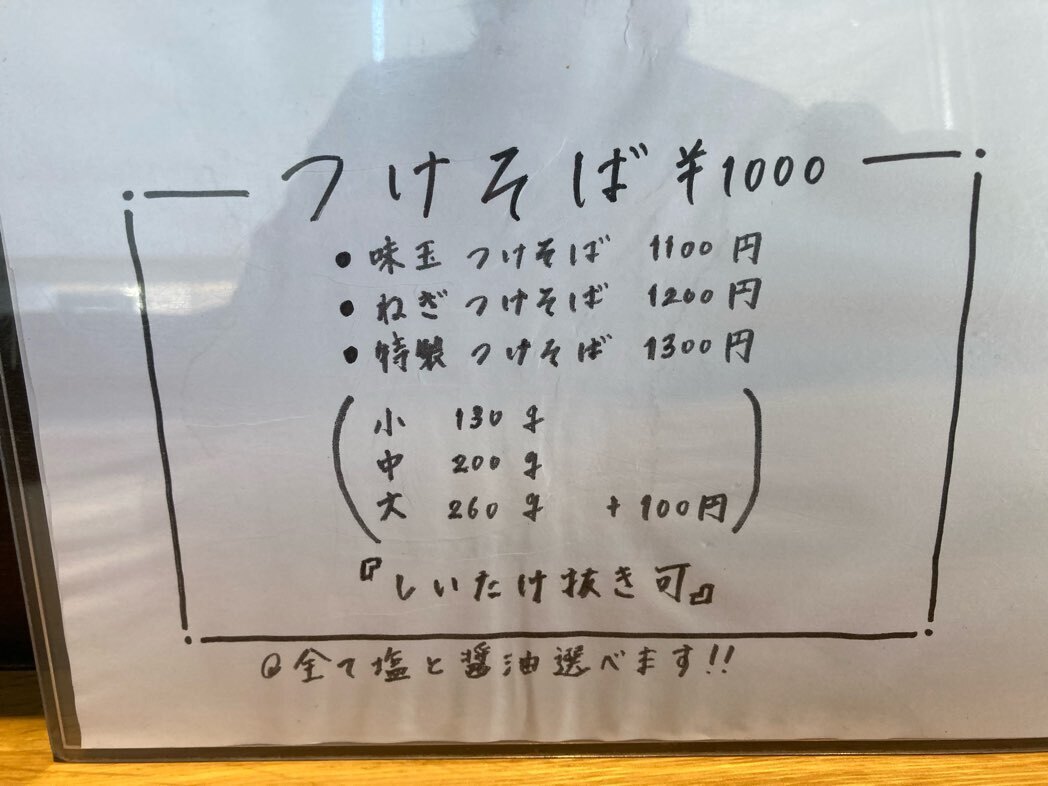 つけそば ¥1000
• 味玉 つけそば 1100円
• ねぎ つけそば 1200円
• 特製 つけそば 1300円
小 130g
中 200g
大 260g +100円
『しいたけ抜き可』
◎全て塩と醤油選べます!!